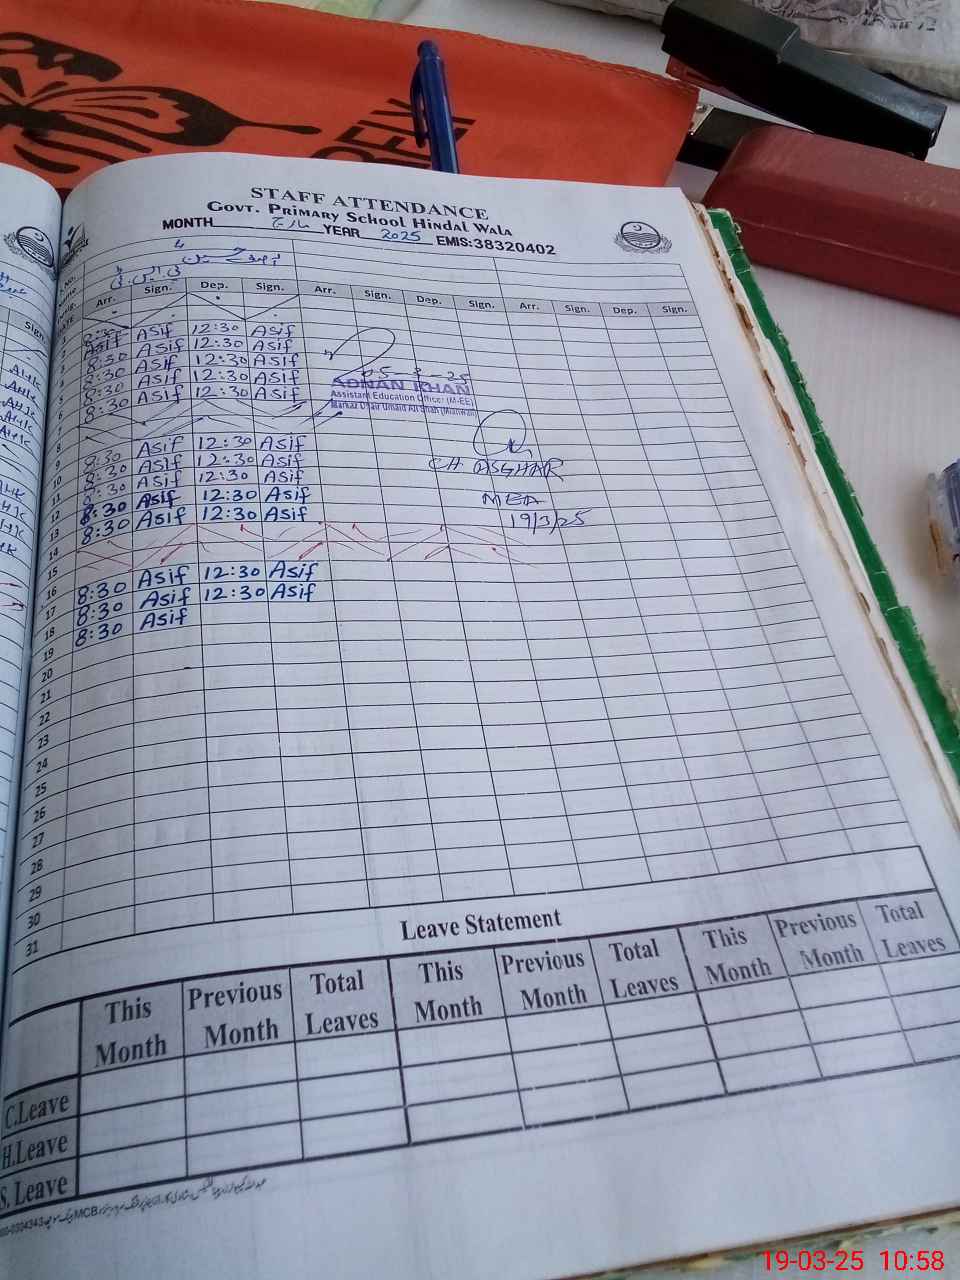 STAFF ATTENDANCE
GOVT. PRIMARY SCHOOL HINDAL WALA
MONTH مارچ YEAR 2025 EMIS:38320402
Arr. Sign. Dep. Sign. Arr. Sign. Dep. Sign. Arr. Sign. Dep. Sign.
1
2
8:30 Asif 12:30 Asif
Asif
8:30 Asif 12:30 Asif
8:30 Asif 12:30 Asif
8:30 Asif 12:30 Asif
8:30 Asif 12:30 Asif
05-3-25
ADNAN KHAN
Assistant Education Officer (M-EE)
8
9
8:30 Asif 12:30 Asif
11 8:30 Asif 12:30 Asif
12 8:30 Asif 12:30 Asif
13 8:30 Asif 12:30 Asif
14 8:30 Asif 12:30 Asif
CH. ASGHAR
MEA
19/3/25
15
16
17 8:30 Asif 12:30 Asif
18 8:30 Asif 12:30 Asif
19 8:30 Asif
20
21
22
23
24
25
26
27
28
29
30
31
Leave Statement
This Month Previous Month Total Leaves This Month Previous Month Total Leaves This Month Previous Month Total Leaves
C.Leave
H.Leave
S. Leave
19-03-25 10:58